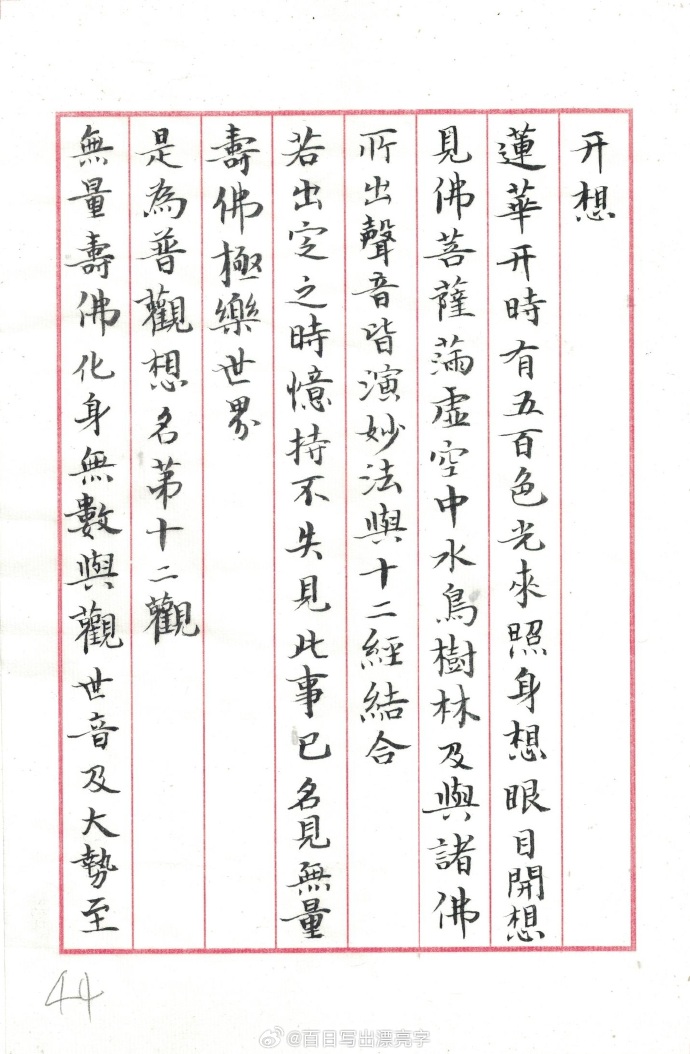 开想
蓮華开時有五百色光來照身想眼目開想
見佛菩薩滿虛空中水鳥樹林及與諸佛
所出聲音皆演妙法與十二經結合
若出定之時憶持不失見此事已名見無量
壽佛極樂世界
是為普觀想名第十二觀
無量壽佛化身無數與觀世音及大勢至
44
@百日写出漂亮字